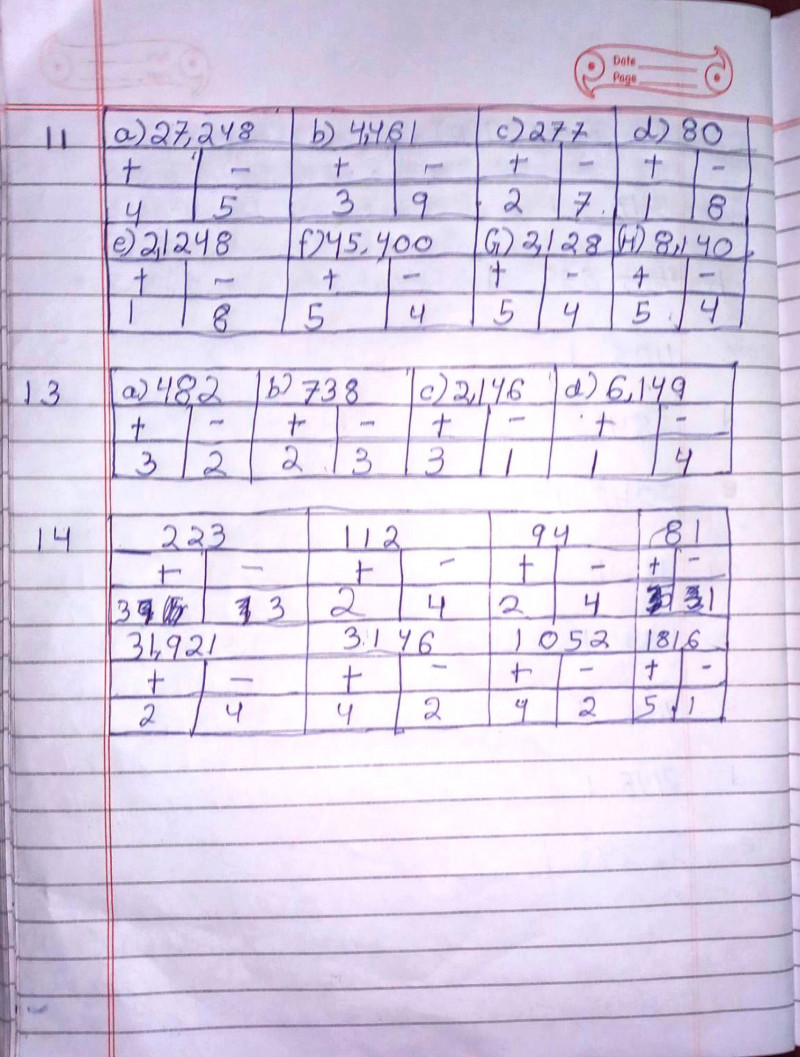 Date
Page
11 a) 27,248 b) 4,461 c) 277 d) 80
+ - + - + - + -
4 5 3 9 2 7. 1 8
e) 2,1248 f) 45,400 (G) 2,128 (H) 8,140
+ - + - + - + -
1 8 5 4 5 4 5. 4
13 a) 482 b) 738 c) 2,146 d) 6,149
+ - + - + - + -
3 2 2 3 3 1 1 4
14 223 112 94 81
+ - + - + - + -
3 3 2 4 2 4 1
31,921 3.146 1052 1816
+ - + - + - + -
2 4 4 2 4 2 5 1